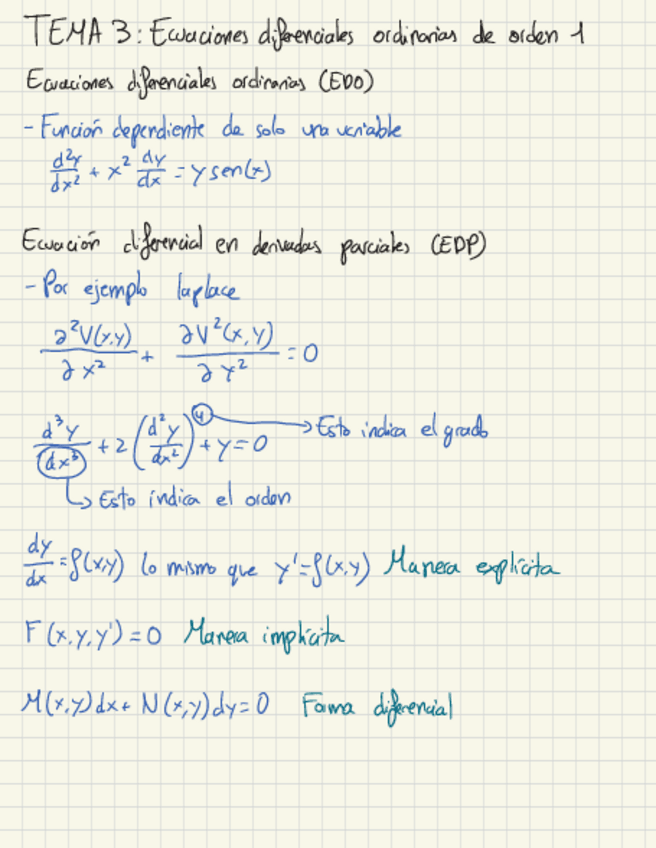 TEMA 3: Ecuaciones diferenciales ordinarias de orden 1
Ecuaciones diferenciales ordinarias (EDO)
- Función dependiente de solo una variable
d²y/dx² + x² dy/dx = y sen(x)
Ecuación diferencial en derivadas parciales (EDP)
- Por ejemplo laplace
∂²V(x,y)/∂x² + ∂V²(x,y)/∂y² = 0
d³y/dx³ + 2(d²y/dx²)⁴ + y = 0 → Esto indica el grado
↳ Esto indica el orden
dy/dx = f(x,y) lo mismo que y' = f(x,y) Manera explícita
F(x,y,y') = 0 Manera implícita
M(x,y)dx + N(x,y)dy = 0 Forma diferencial